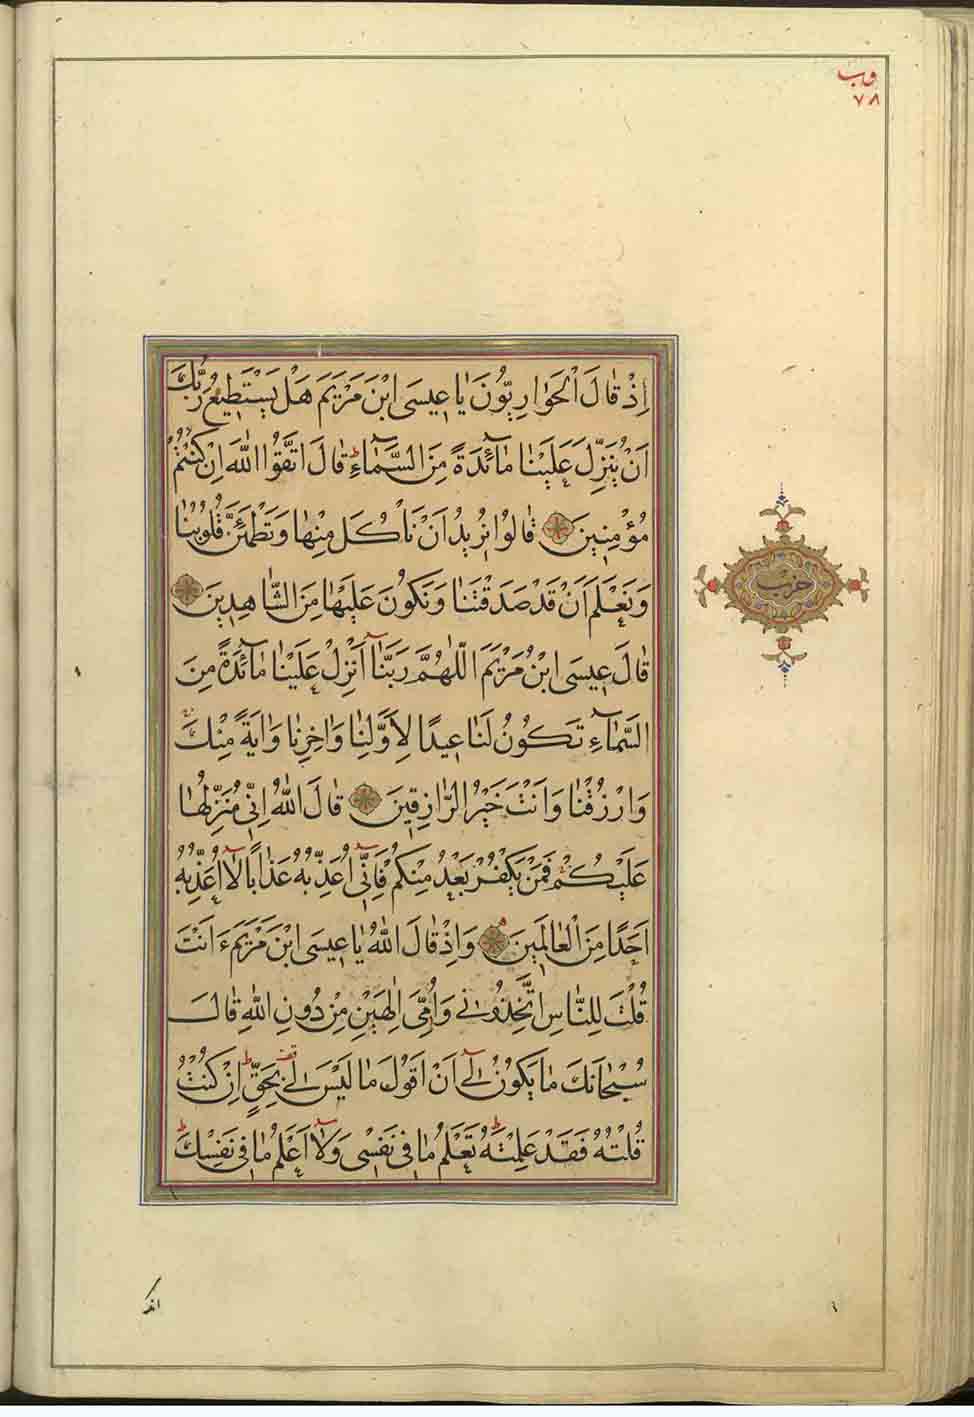 وب
٧٨
إِذْ قَالَ الْحَوَارِيُّونَ يَا عِيسَى ابْنَ مَرْيَمَ هَلْ يَسْتَطِيعُ رَبُّكَ
اَنْ يُنَزِّلَ عَلَيْنَا مَآئِدَةً مِنَ السَّمَآءِ قَالَ اتَّقُوا اللهَ اِنْ كُنْتُمْ
مُؤْمِنِينَ قَالُوا نُرِيدُ اَنْ نَأْكُلَ مِنْهَا وَتَطْمَئِنَّ قُلُوبُنَا
وَنَعْلَمَ اَنْ قَدْ صَدَقْتَنَا وَنَكُونَ عَلَيْهَا مِنَ الشَّاهِدِينَ
حزب
قَالَ عِيسَى ابْنُ مَرْيَمَ اللّٰهُمَّ رَبَّنَآ اَنْزِلْ عَلَيْنَا مَآئِدَةً مِنَ
السَّمَآءِ تَكُونُ لَنَا عِيدًا لِاَوَّلِنَا وَاٰخِرِنَا وَاٰيَةً مِنْكَ
وَارْزُقْنَا وَاَنْتَ خَيْرُ الرَّازِقِينَ قَالَ اللهُ اِنِّي مُنَزِّلُهَا
عَلَيْكُمْ فَمَنْ يَكْفُرْ بَعْدُ مِنْكُمْ فَاِنِّىٓ اُعَذِّبُهُ عَذَابًا لَآ اُعَذِّبُهُ
اَحَدًا مِنَ الْعَالَمِينَ وَاِذْ قَالَ اللهُ يَا عِيسَى ابْنَ مَرْيَمَ ءَاَنْتَ
قُلْتَ لِلنَّاسِ اتَّخِذُونِي وَاُمِّىَ اِلٰهَيْنِ مِنْ دُونِ اللهِ قَالَ
سُبْحَانَكَ مَا يَكُونُ لِىٓ اَنْ اَقُولَ مَا لَيْسَ لِي بِحَقٍّ اِنْ كُنْتُ
قُلْتُهُ فَقَدْ عَلِمْتَهُ تَعْلَمُ مَا فِي نَفْسِي وَلَآ اَعْلَمُ مَا فِي نَفْسِكَ
انك